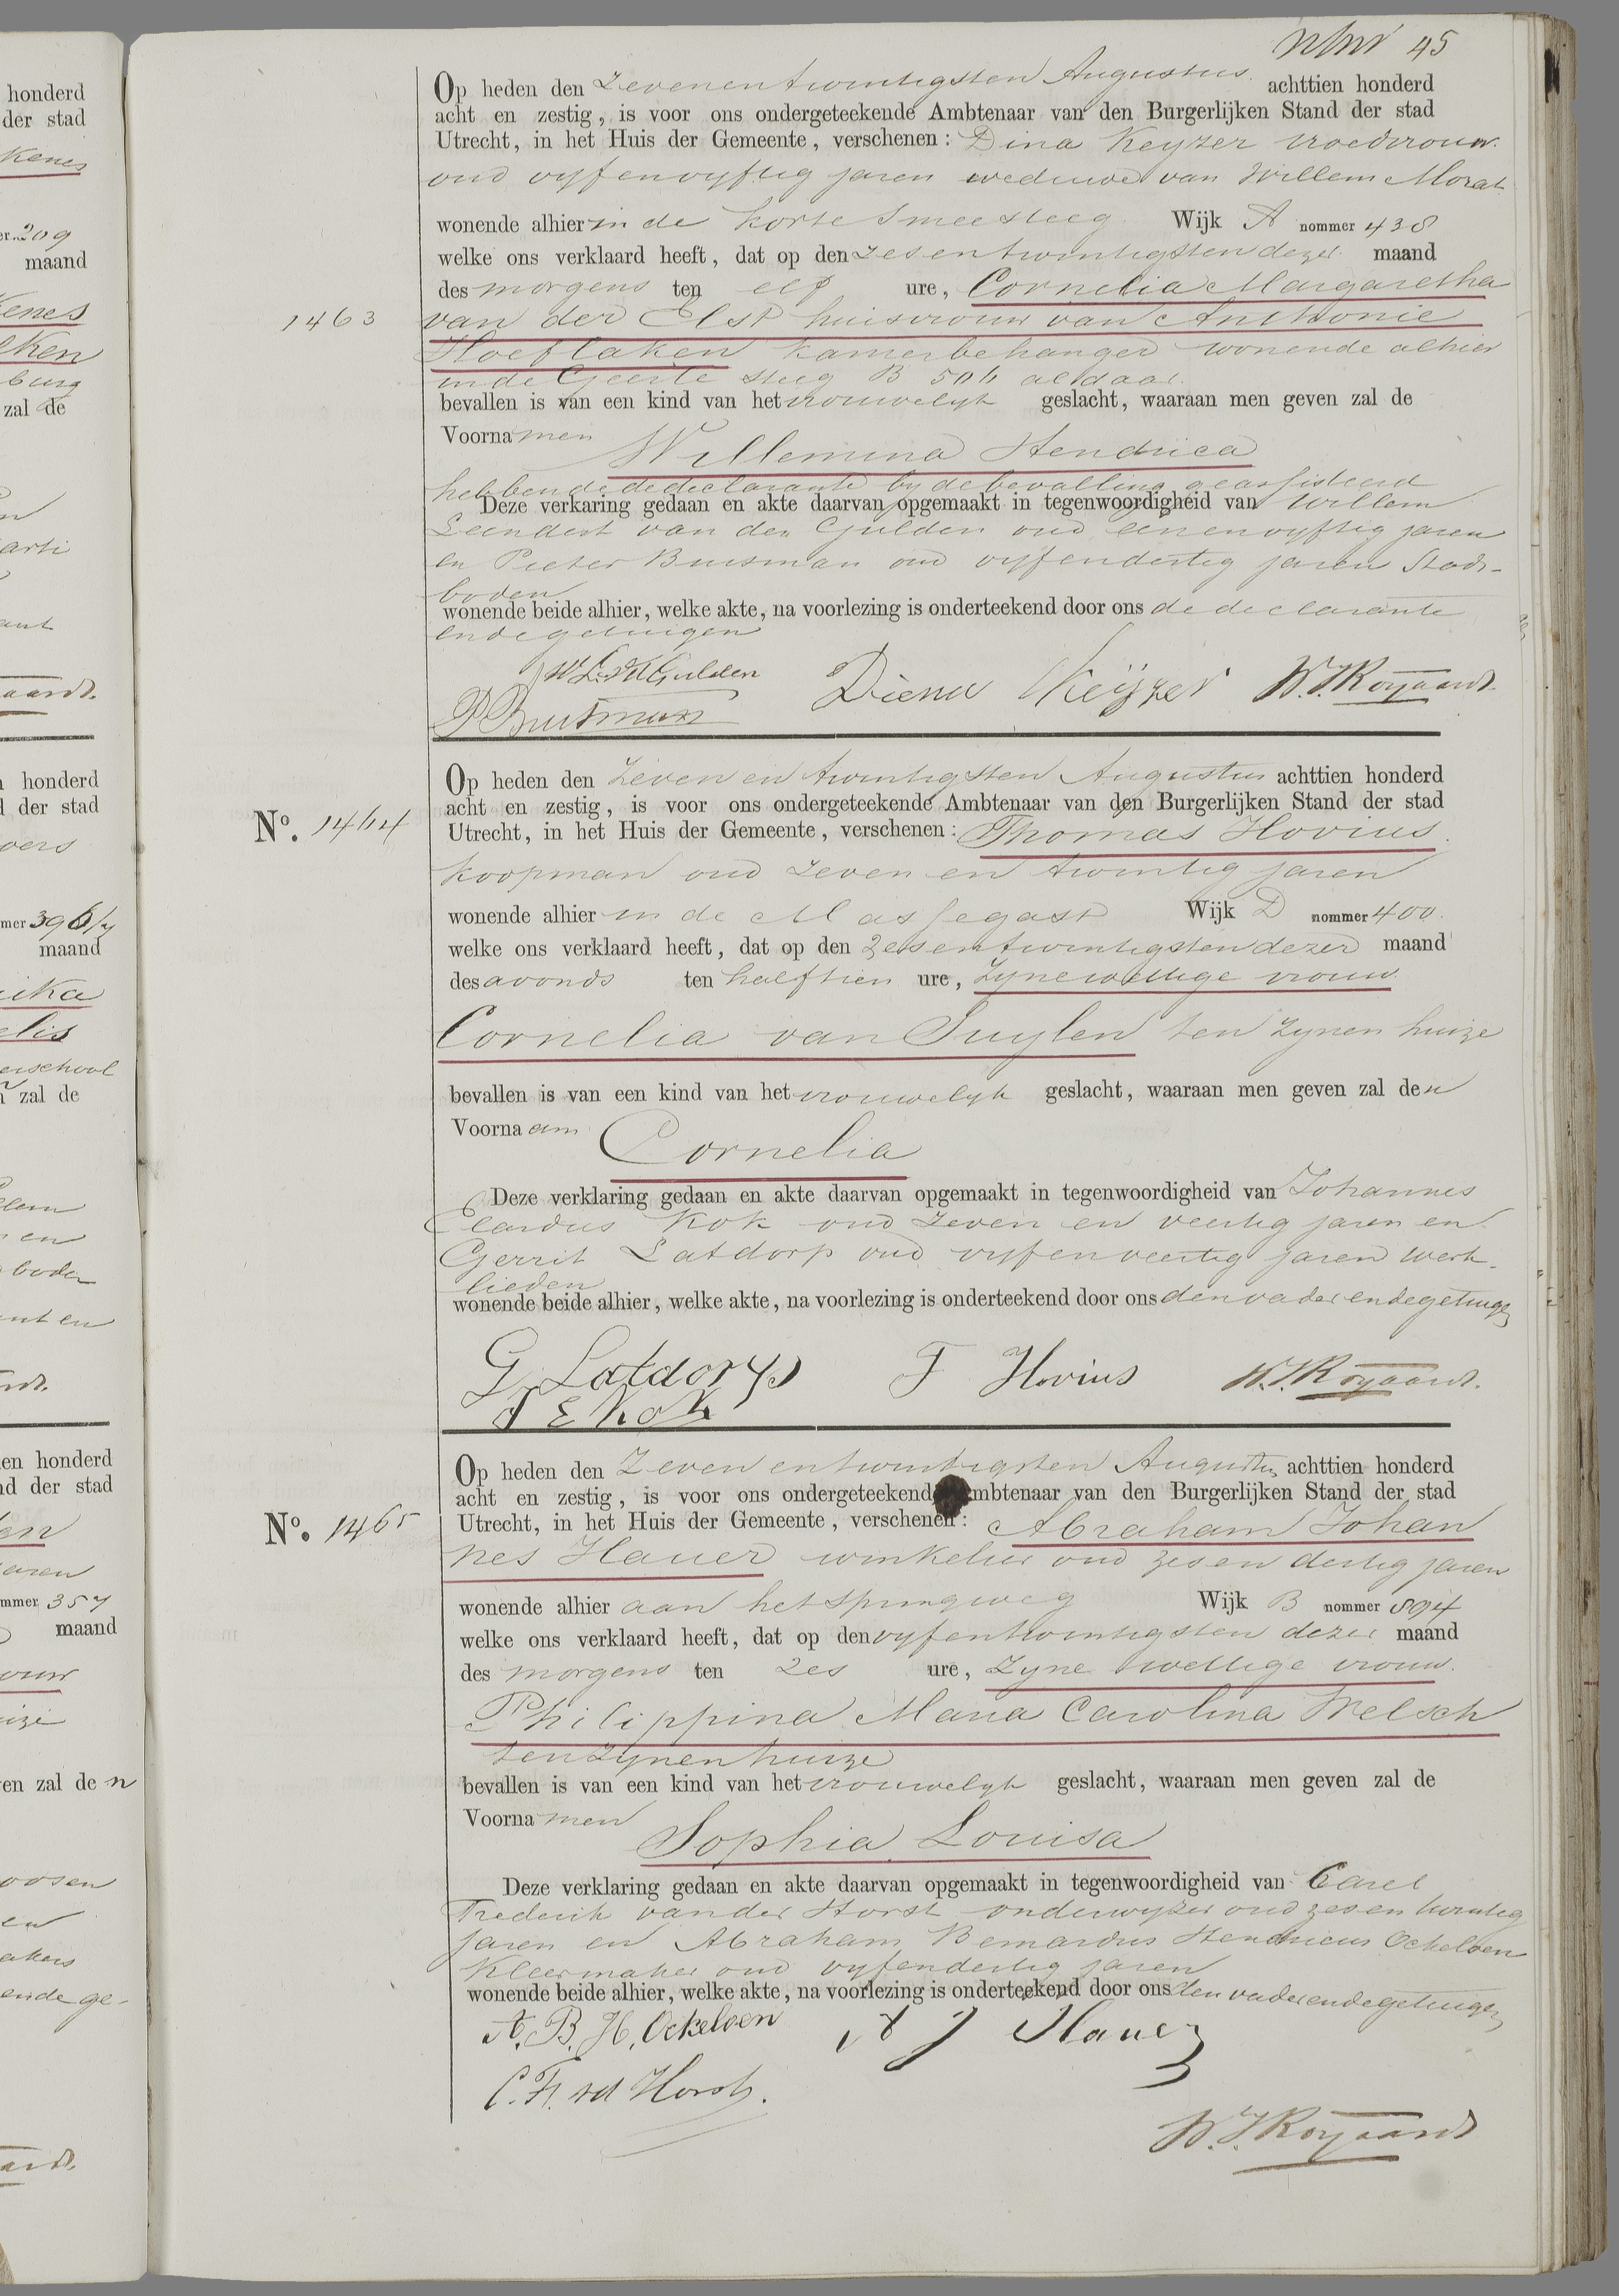 45
Op heden den Zevenentwintigsten Augustus achttien honderd
acht en zestig, is voor ons ondergeteekende Ambtenaar van den Burgerlijken Stand der stad
Utrecht, in het Huis der Gemeente, verschenen: Dina Keyzer vroedvrouw
oud vyfenvyftig jaren weduwe van Willem Morat
wonende alhier in de korte Smeesteeg Wijk A nommer 438
welke ons verklaard heeft, dat op den zesentwintigsten dezer maand
des morgens ten elf ure, Cornelia Margaretha
1463 van der Elst huisvrouw van Anthonie
Hoeflaken kamerbehanger wonende alhier
in de Geerte steeg B 506 aldaar
bevallen is van een kind van het vrouwelyk geslacht, waaraan men geven zal de
Voornamen Willemina Hendrica
hebbende de declarante by de bevalling geassisteerd
Deze verkaring gedaan en akte daarvan opgemaakt in tegenwoordigheid van Willem
Leendert van der Gulden oud eenenvyftig jaren
en Pieter Buisman oud vyfendertig jaren Stads-
boden
wonende beide alhier, welke akte, na voorlezing is onderteekend door ons de declarante
en de getuigen
W L vd Gulden Diena Keÿzer W.J. Royaards
P Buisman
Op heden den Zeven en twintigsten Augustus achttien honderd
acht en zestig, is voor ons ondergeteekende Ambtenaar van den Burgerlijken Stand der stad
No. 1464 Utrecht, in het Huis der Gemeente, verschenen: Thomas Hovius
koopman oud zeven en twintig jaren
wonende alhier in de Massegast Wijk D nommer 400
welke ons verklaard heeft, dat op den zesentwintigsten dezer maand
des avonds ten halftien ure, zyne wettige vrouw
Cornelia van Suylen ten zynen huize
bevallen is van een kind van het vrouwelyk geslacht, waaraan men geven zal den
Voornaam Cornelia
Deze verklaring gedaan en akte daarvan opgemaakt in tegenwoordigheid van Johannes
Elardus Kok oud zeven en veertig jaren en
Gerrit Latdorp oud vyfenveertig jaren werk-
lieden
wonende beide alhier, welke akte, na voorlezing is onderteekend door ons den vader en de getuigen
G Latdorp T Hovius W.J. Royaards.
J E Kok
Op heden den Zeven en twintigsten Augustus achttien honderd
acht en zestig, is voor ons ondergeteekend mbtenaar van den Burgerlijken Stand der stad
No. 1465 Utrecht, in het Huis der Gemeente, verschenen: Abraham Johan
nes Hauer winkelier oud zesendertig jaren
wonende alhier aan het springweg Wijk B nommer 894
welke ons verklaard heeft, dat op den vyfentwintigsten dezer maand
des morgens ten zes ure, zyne wettige vrouw
Philippina Maria Carolina Welsch
ten zynen huize
bevallen is van een kind van het vrouwelyk geslacht, waaraan men geven zal de
Voornamen Sophia Louisa
Deze verklaring gedaan en akte daarvan opgemaakt in tegenwoordigheid van Carel
Frederik van der Horst onderwyzer oud zesentwintig
jaren en Abraham Bernardus Hendricus Ockeloen
kleermaker oud vyfendertig jaren
wonende beide alhier, welke akte, na voorlezing is onderteekend door ons den vader en de getuigen
A. B. H. Ockeloen A J Hauer
C. F. vd Horst.
W. J. Royaards